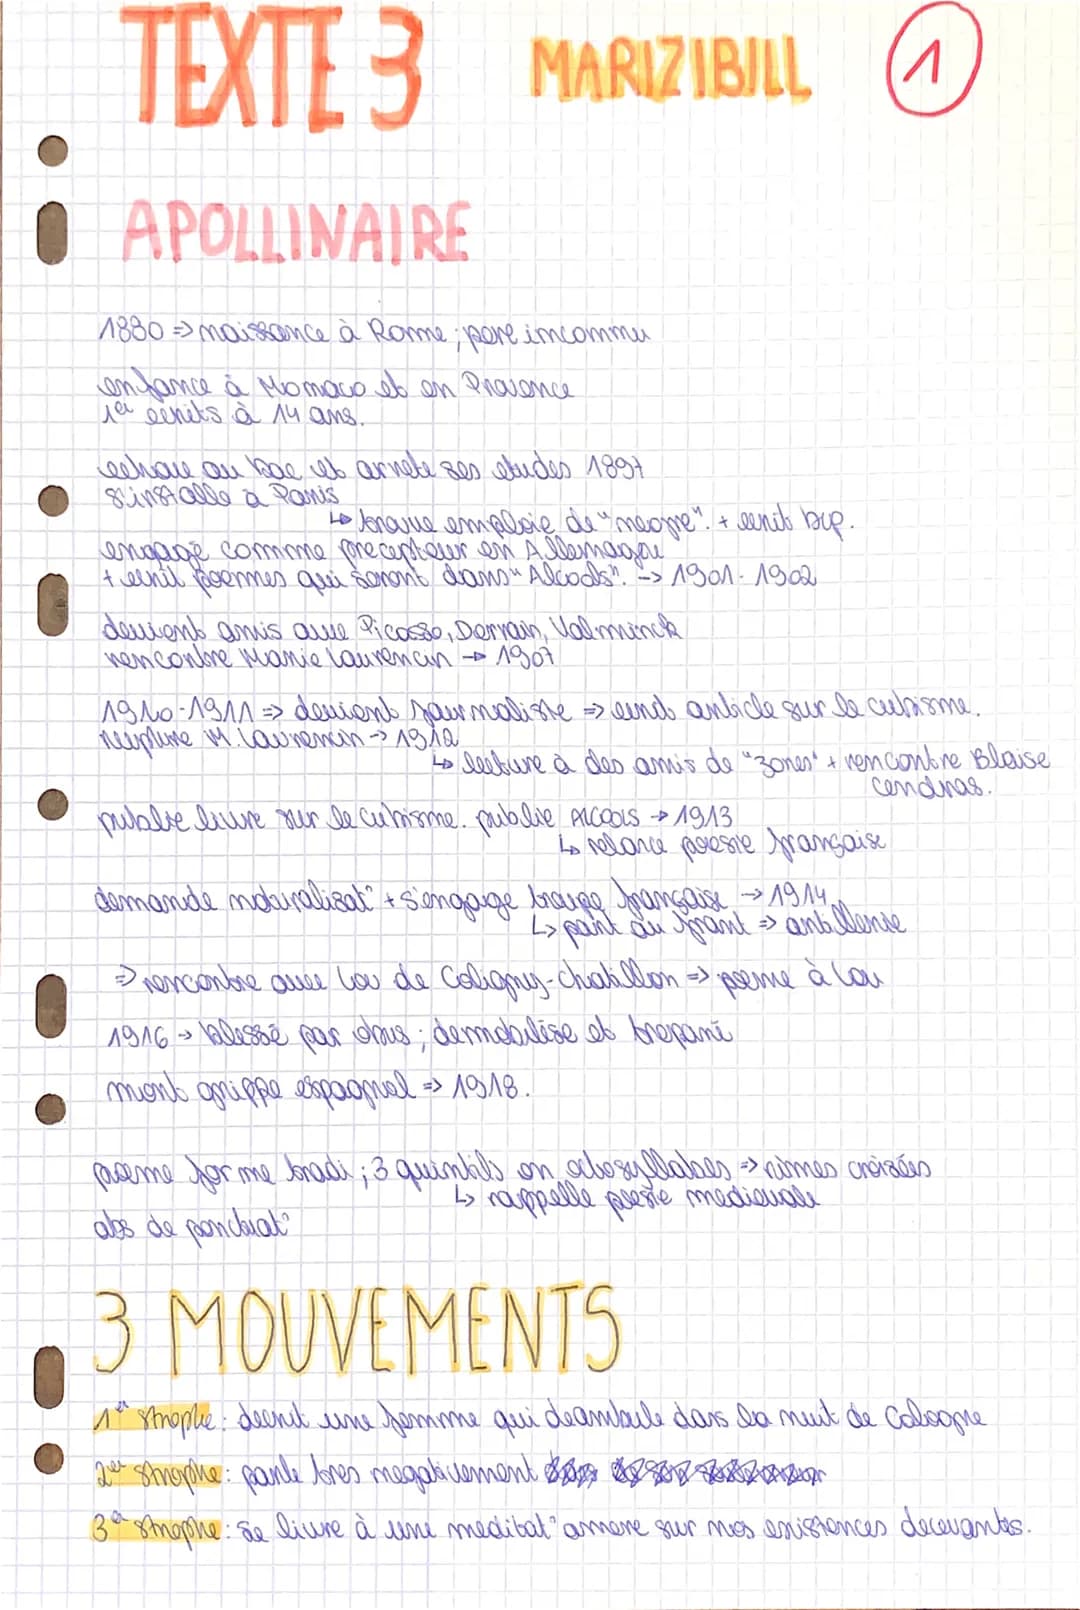 TEXTE 3 MARIZIBILL 1
APOLLINAIRE
1880 => naissance à Rome ; pere inconnu
enfance à Monaco et en Provence
1er ecrits à 14 ans.
echoue au bac et arrete ses etudes 1897
s'installe à Paris
↳ trouve emploie de "negre". + ecrit bcp.
engagé comme precepteur en Allemagne
+ ecrit poemes qui seront dans "Alcools". -> 1901-1902
devient amis avec Picasso, Derrain, Valminck
rencontre Marie Laurencin -> 1907
1910-1911 => devient journaliste => ecrit article sur le cubisme.
rupture M. Laurencin -> 1912
↳ lecture à des amis de "zones" + rencontre Blaise
cendras.
publie livre sur le cubisme. publie ALCOOLS -> 1913
↳ relance poesie française
demande naturalisat° + s'engage française -> 1914
↳ part au front => artillerie
=> rencontre avec Lou de Coligny-chatillon => poeme à Lou
1916 -> blessé par obus ; demobilise et trepané
mort grippe espagnol => 1918.
poeme forme tradi ; 3 quintils en octosyllabes => rimes croisées
↳ rappelle poesie medievale
abs de ponctuat°
3 MOUVEMENTS
1er strophe : decrit une femme qui deambule dans la nuit de Cologne
2er strophe : parle tres negativement
3e strophe : se livre à une meditat° amere sur nos existences decevantes.